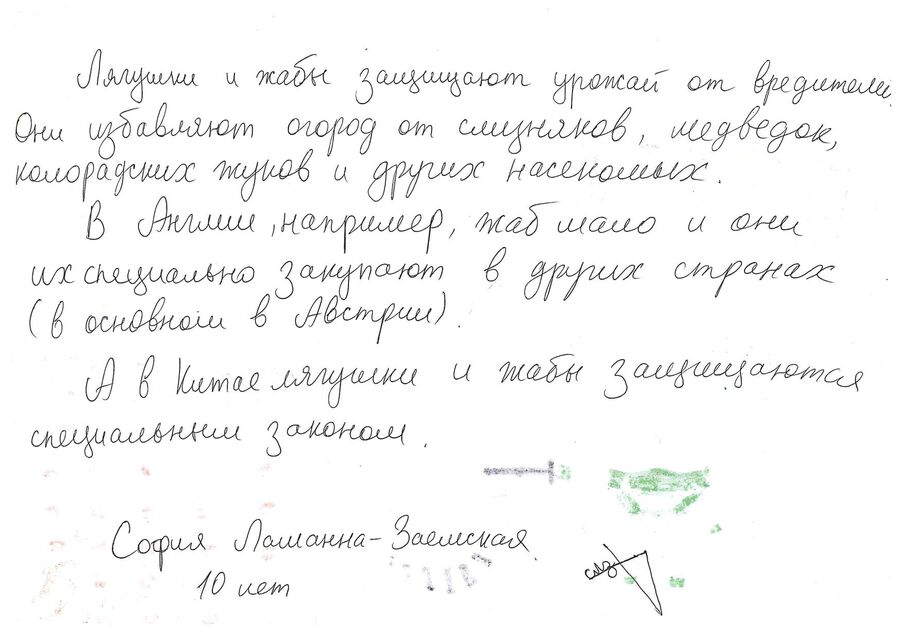 Лягушки и жабы защищают урожай от вредители.
Они избавляют огород от слизняков, медведок,
колорадских жуков и других насекомых.
В Англии, например, жаб мало и они
их специально закупают в других странах
(в основном в Австрии).
А в Китае лягушки и жабы защищаются
специальным законом.
София Ламанна-Заемская
10 лет